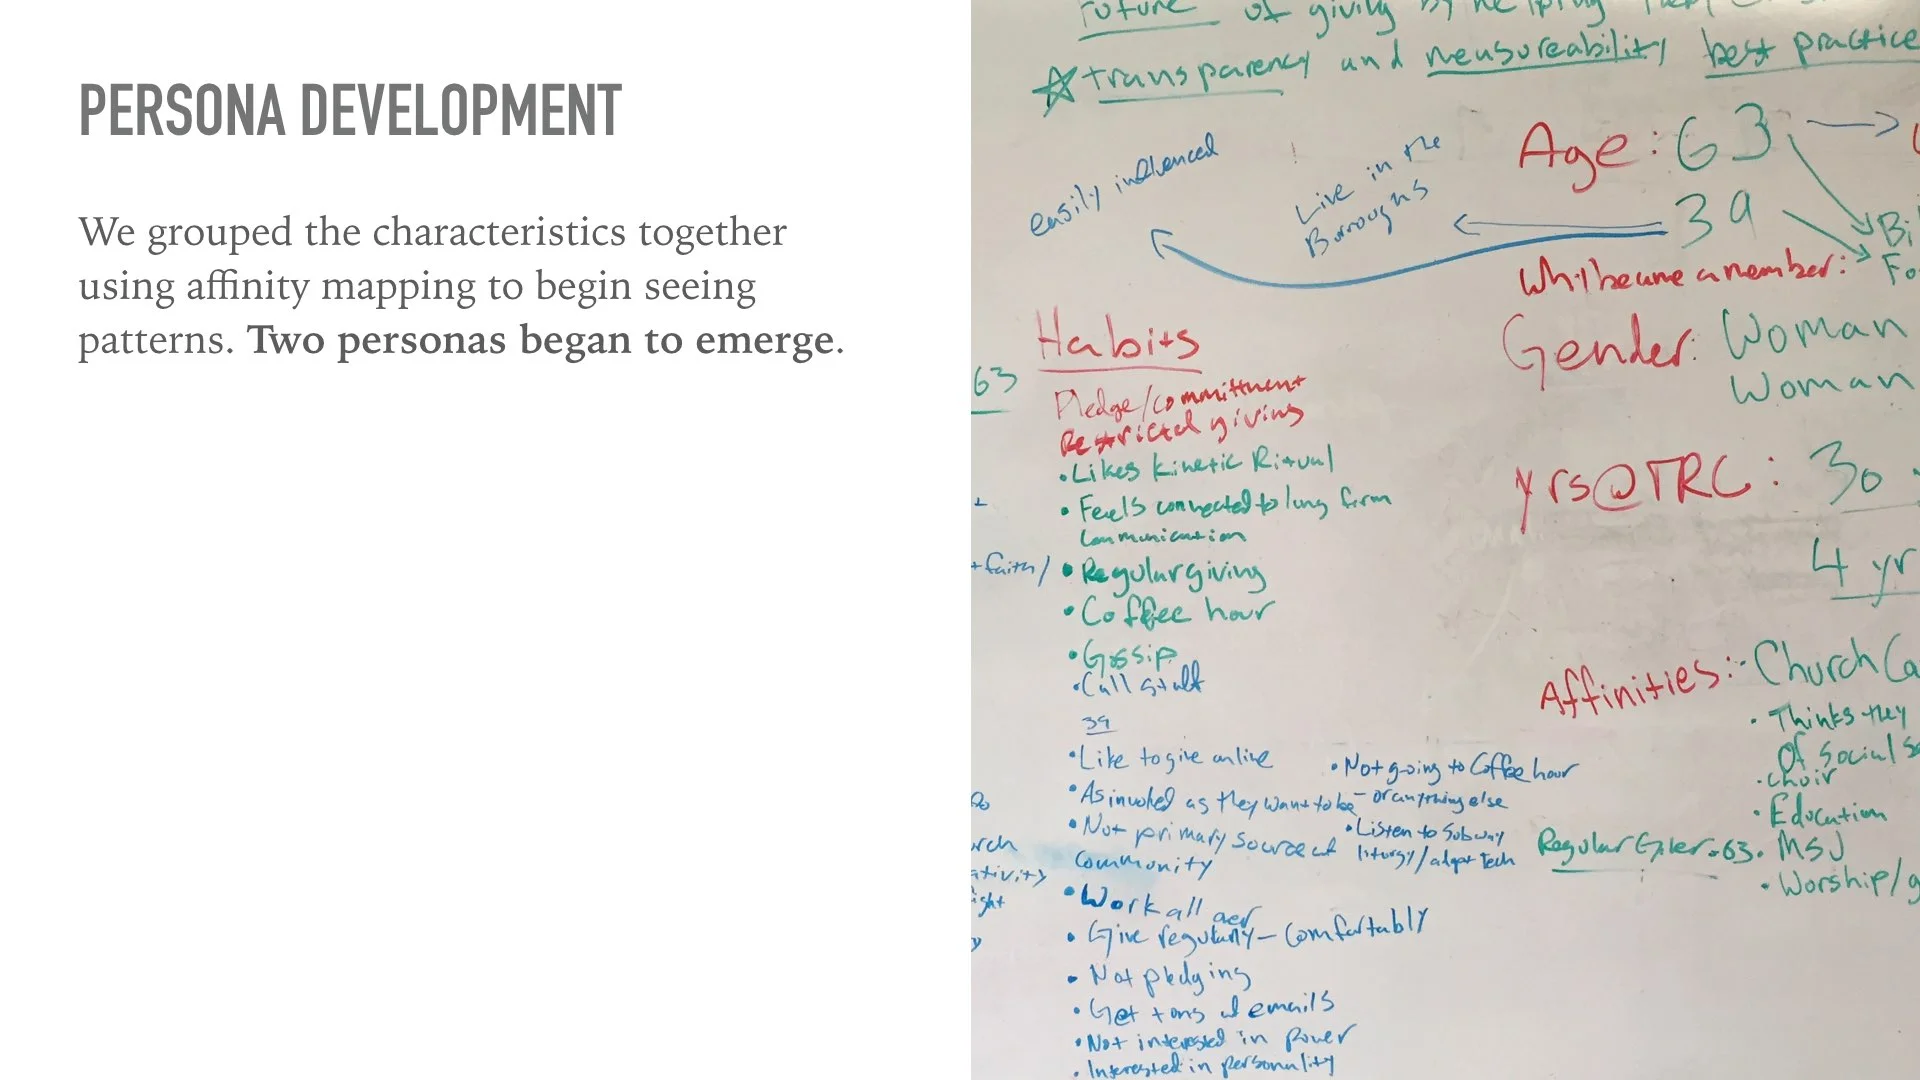 PERSONA DEVELOPMENT
We grouped the characteristics together
using affinity mapping to begin seeing
patterns. Two personas began to emerge.
Future of giving by helping
☆ transparency and measureability best practice
easily influenced
Live in the
Burroughs
Age: 63
39
Bi
Fo
Gender: Woman
Woman
yrs@TRC: 30
4 yr
Affinities: Church Ca
• Thinks they
Of social S
• choir
• Education
Regular Giver - 63
• MSJ
• Worship/g
63
Habits
Pledge/committment
Restricted giving
• Likes Kinetic Ritual
• Feels connected to long form
communication
• Regular giving
• Coffee hour
• Gossip
• Call staff
39
• Like to give online
• As involved as they want to be
• Not primary source of
community
• Work all
• Give regularly – comfortably
• Not pledging
• Get tons of emails
• Not interested in power
• Interested in personality
• Not going to Coffee hour
– or anything else
• Listen to Subway
liturgy/ tech
+ faith/
rch
ativity
ight
y